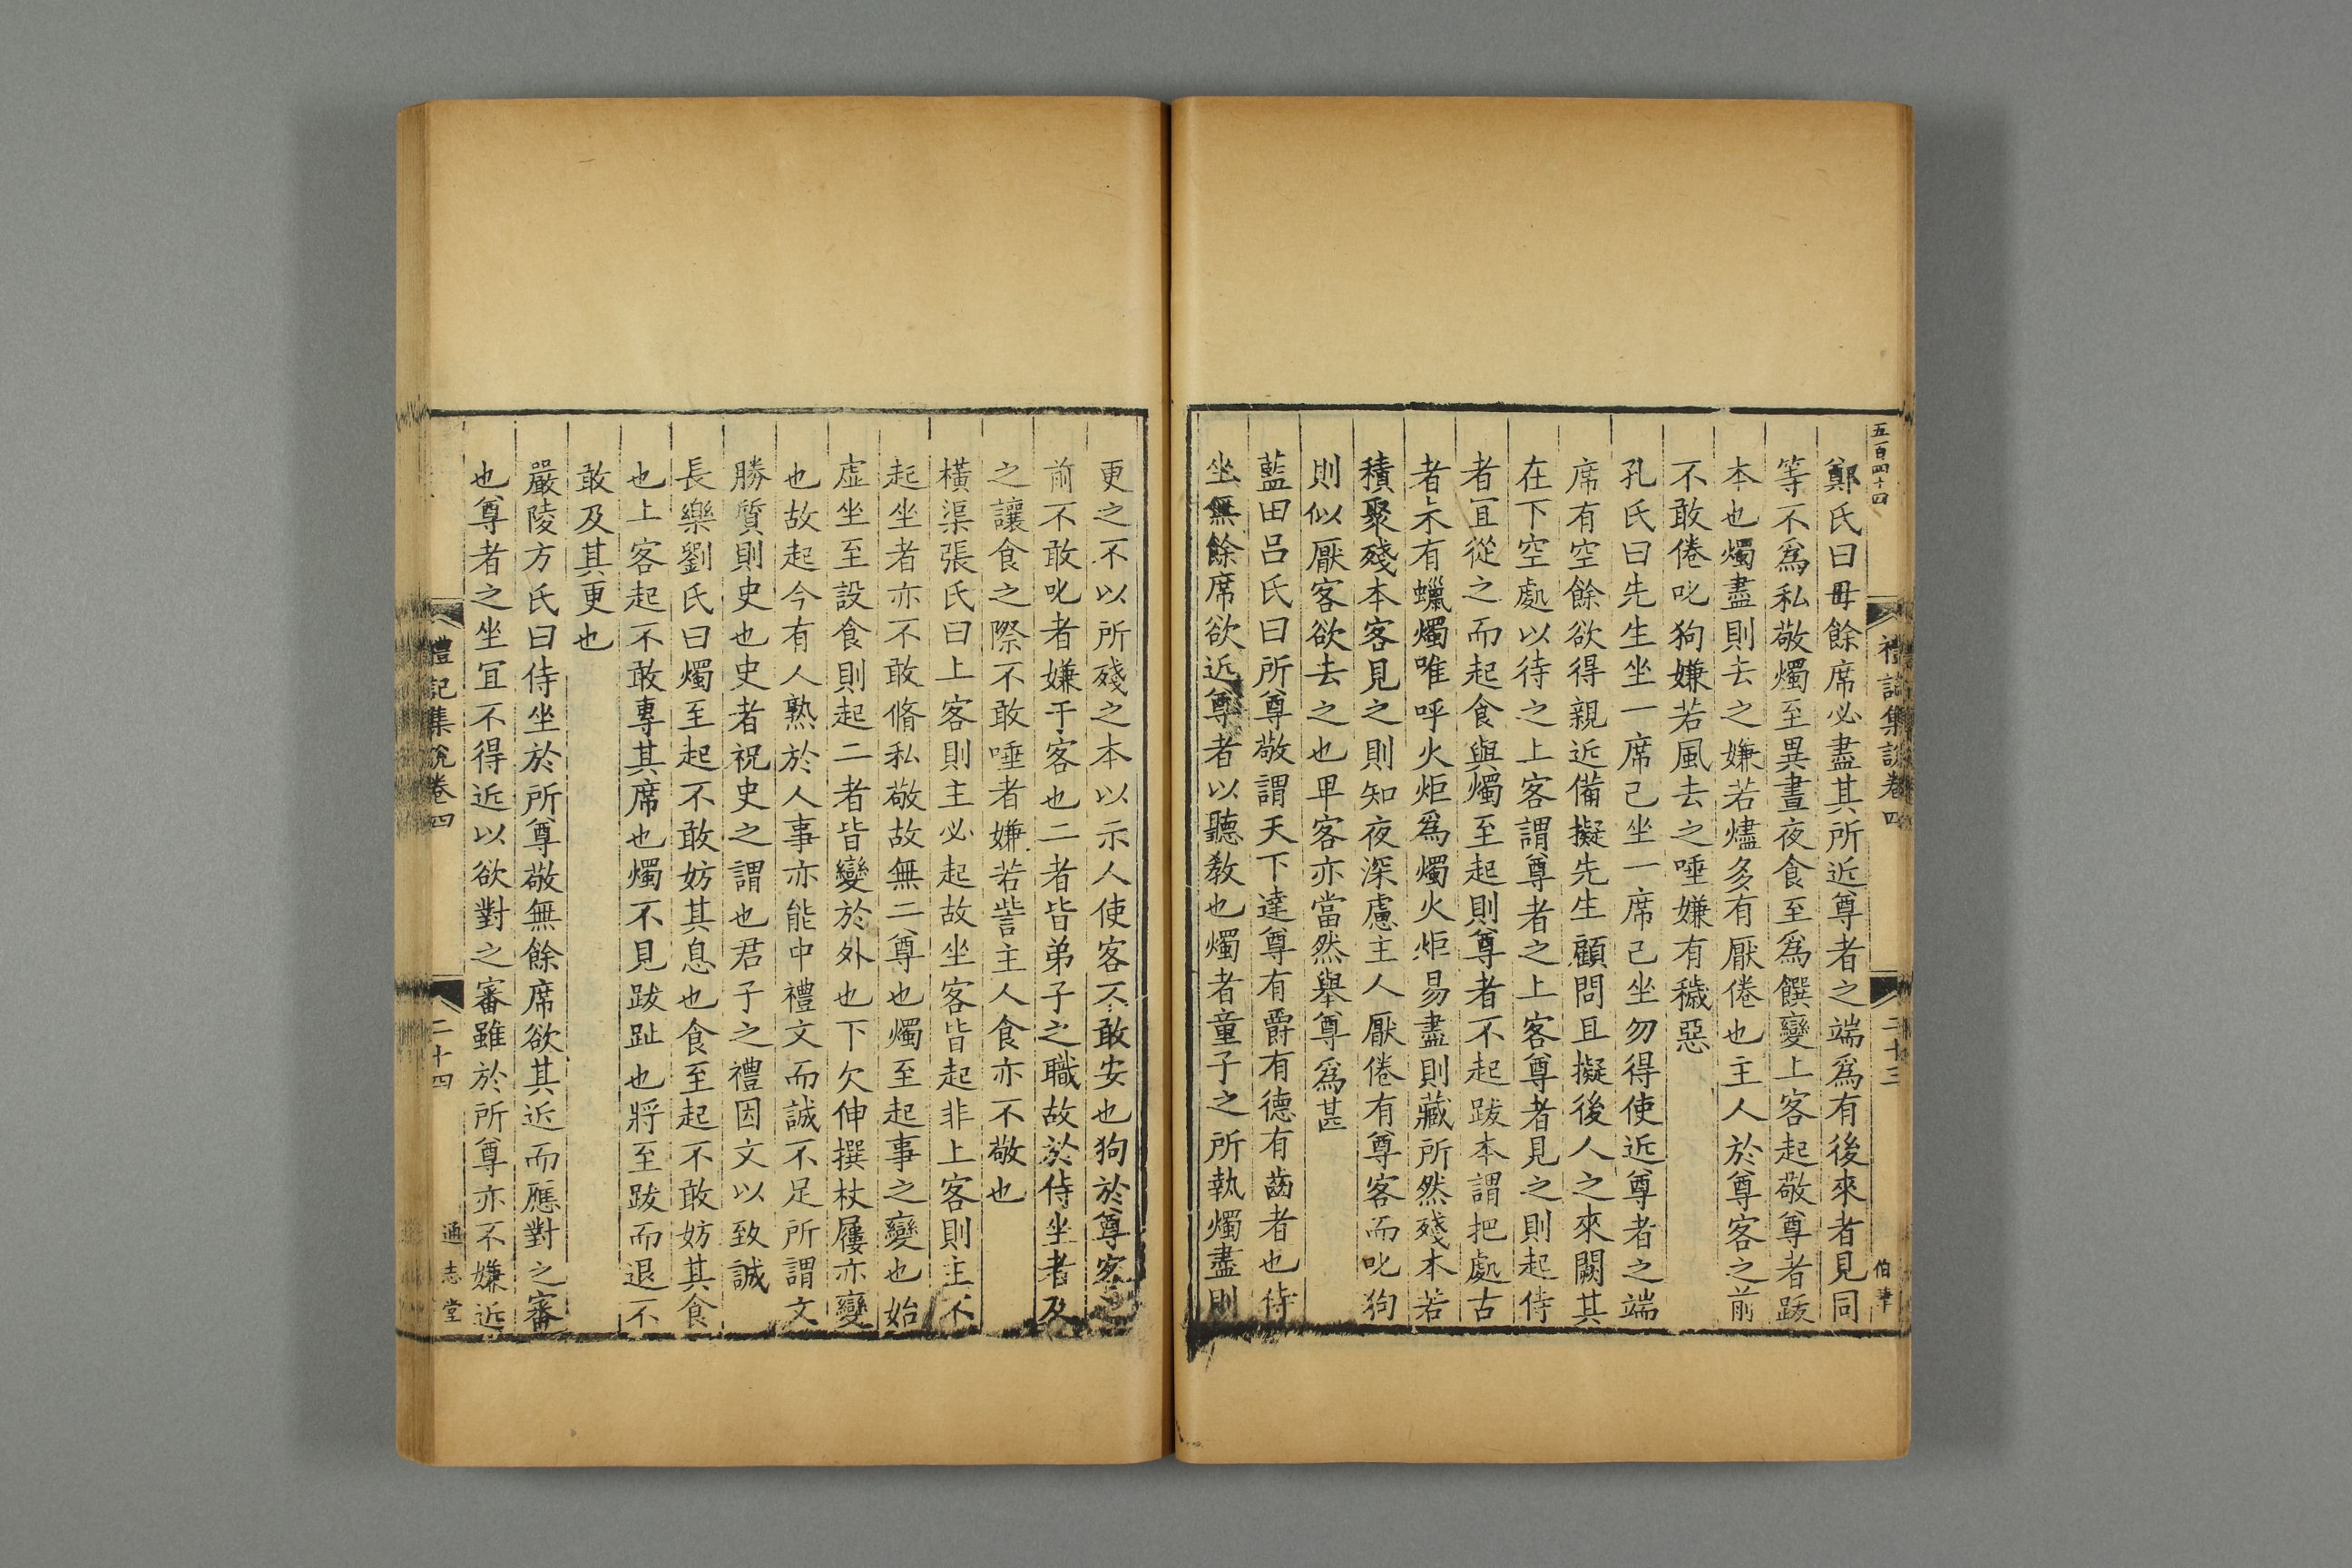 五百四十四
禮記集說卷四
二十三
伯筆
鄭氏曰毋餘席必盡其所近尊者之端爲有後來者見同
等不爲私敬燭至異晝夜食至爲饌變上客起敬尊者跋
本也燭盡則去之嫌若燼多有厭倦也主人於尊客之前
不敢倦叱狗嫌若風去之唾嫌有穢惡
孔氏曰先生坐一席己坐一席己坐勿得使近尊者之端
席有空餘欲得親近備擬先生顧問且擬後人之來闕其
在下空處以待之上客謂尊者之上客尊者見之則起侍
者宜從之而起食與燭至起則尊者不起跋本謂把處古
者未有蠟燭唯呼火炬爲燭火炬易盡則藏所然殘本若
積聚殘本客見之則知夜深慮主人厭倦有尊客而叱狗
則似厭客欲去之也卑客亦當然舉尊爲甚
藍田呂氏曰所尊敬謂天下達尊有爵有德有齒者也侍
坐無餘席欲近尊者以聽教也燭者童子之所執燭盡則
更之不以所殘之本以示人使客不敢安也狗於尊客之
前不敢叱者嫌于客也二者皆弟子之職故於侍坐者及
之讓食之際不敢唾者嫌若訾主人食亦不敬也
橫渠張氏曰上客則主必起故坐客皆起非上客則主不
起坐者亦不敢脩私敬故無二尊也燭至起事之變也始
虛坐至設食則起二者皆變於外也下欠伸撰杖屨亦變
也故起今有人熟於人事亦能中禮文而誠不足所謂文
勝質則史也史者祝史之謂也君子之禮因文以致誠
長樂劉氏曰燭至起不敢妨其息也食至起不敢妨其食
也上客起不敢專其席也燭不見跋趾也將至跋而退不
敢及其更也
嚴陵方氏曰侍坐於所尊敬無餘席欲其近而應對之審
也尊者之坐宜不得近以欲對之審雖於所尊亦不嫌近
禮記集說卷四
二十四
通志堂